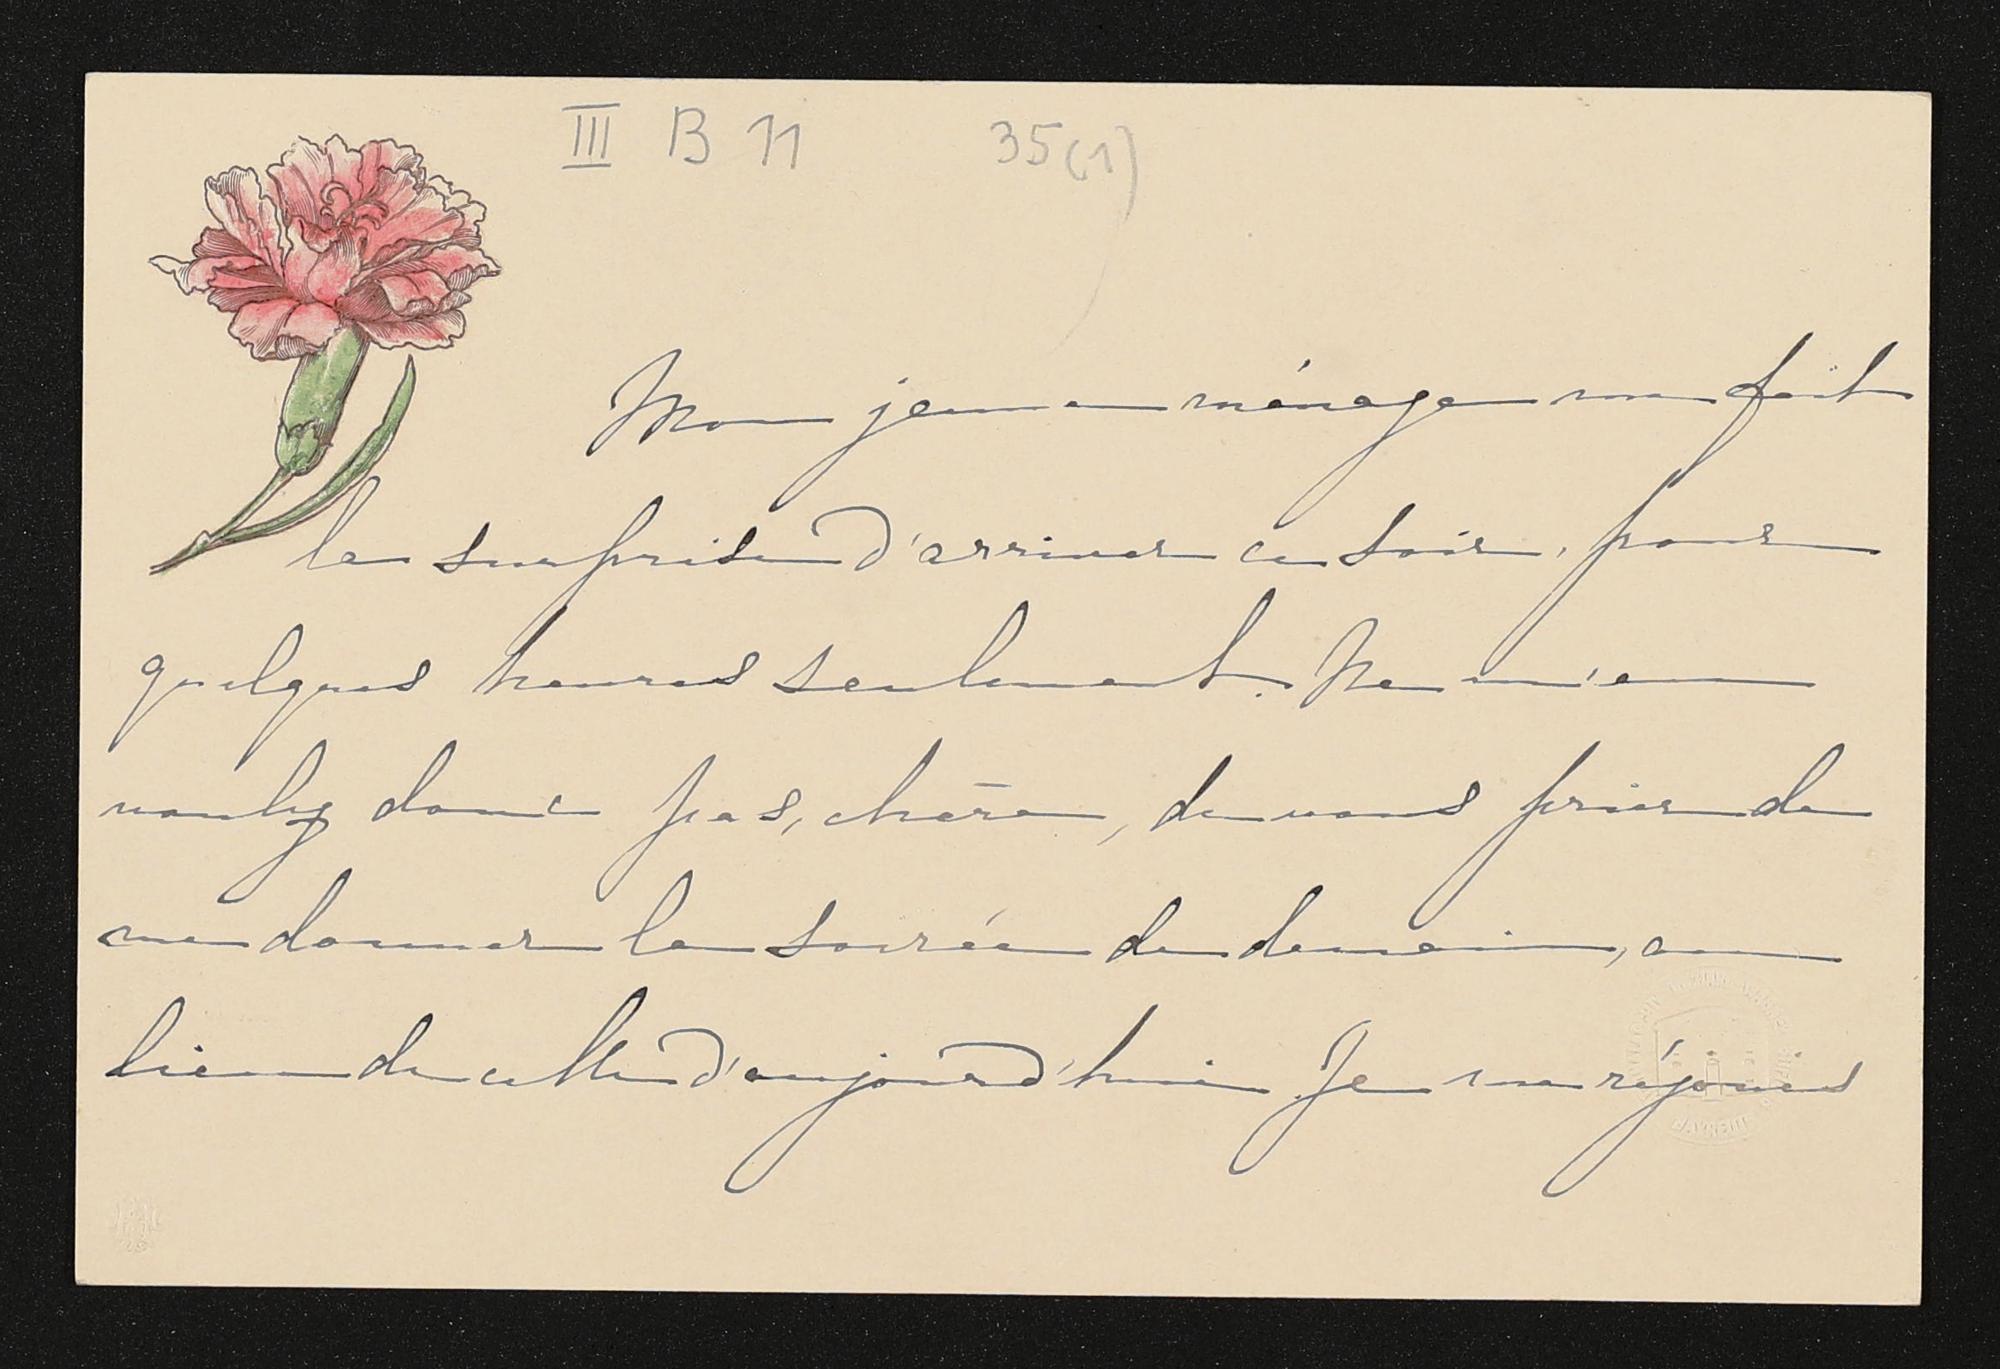 III B 11 35(1)
Mon jeune ménage me fait
la surprise d'arriver ce soir, pour
quelques heures seulement. Ne m'en
voulez donc pas, chère, de vous prier de
me donner la soirée de demain, au
lieu de celle d'aujourd'hui. Je me réjouis